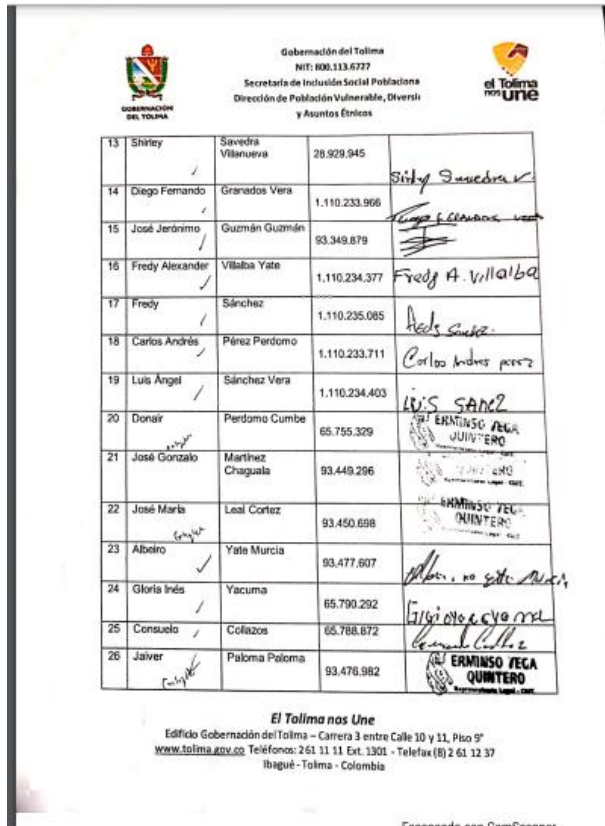 Gobernación del Tolima
NIT: 800.113.6727
Secretaría de Inclusión Social Poblaciona
Dirección de Población Vulnerable, Diversi
y Asuntos Étnicos
GOBERNACIÓN
DEL TOLIMA
el Tolima
nos une
13 Shirley Savedra Villanueva 28.929.945
14 Diego Fernando Granados Vera 1.110.233.966
15 José Jerónimo Guzmán Guzmán 93.349.879
16 Fredy Alexander Villalba Yate 1.110.234.377 Fredy A. Villalba
17 Fredy Sánchez 1.110.235.085
18 Carlos Andrés Pérez Perdomo 1.110.233.711 Carlos Andres perez
19 Luis Ángel Sánchez Vera 1.110.234.403 LUIS SANCZ
20 Donair Perdomo Cumbe 65.755.329 ERMINSO VEGA QUINTERO
21 José Gonzalo Martínez Chaguala 93.449.296 QUINTERO
22 José María Leal Cortez 93.450.698 ERMINSO VEGA QUINTERO
23 Albeiro Yate Murcia 93.477.607
24 Gloria Inés Yacuma 65.790.292
25 Consuelo Collazos 65.788.872
26 Jaiver Paloma Paloma 93.476.982 ERMINSO VEGA QUINTERO
El Tolima nos Une
Edificio Gobernación del Tolima – Carrera 3 entre Calle 10 y 11, Piso 9°
www.tolima.gov.co Teléfonos: 261 11 11 Ext. 1301 - Telefax (8) 2 61 12 37
Ibagué - Tolima - Colombia
Escaneado con CamScanner